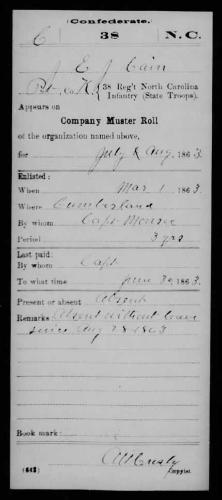 (Confederate.)
C 38 N.C.
J E J Cain
Pvt, Co. K, 38 Reg't North Carolina
Infantry (State Troops).
Appears on
Company Muster Roll
of the organization named above,
for July & Aug, 1863.
Enlisted:
When Mar 1, 1863.
Where Cumberland
By whom Capt Monroe
Period 3 yrs
Last paid:
By whom Capt
To what time June 30, 1863.
Present or absent Absent
Remarks Absent without leave
since Aug 28 1863
Book mark:
(642) Copyist.